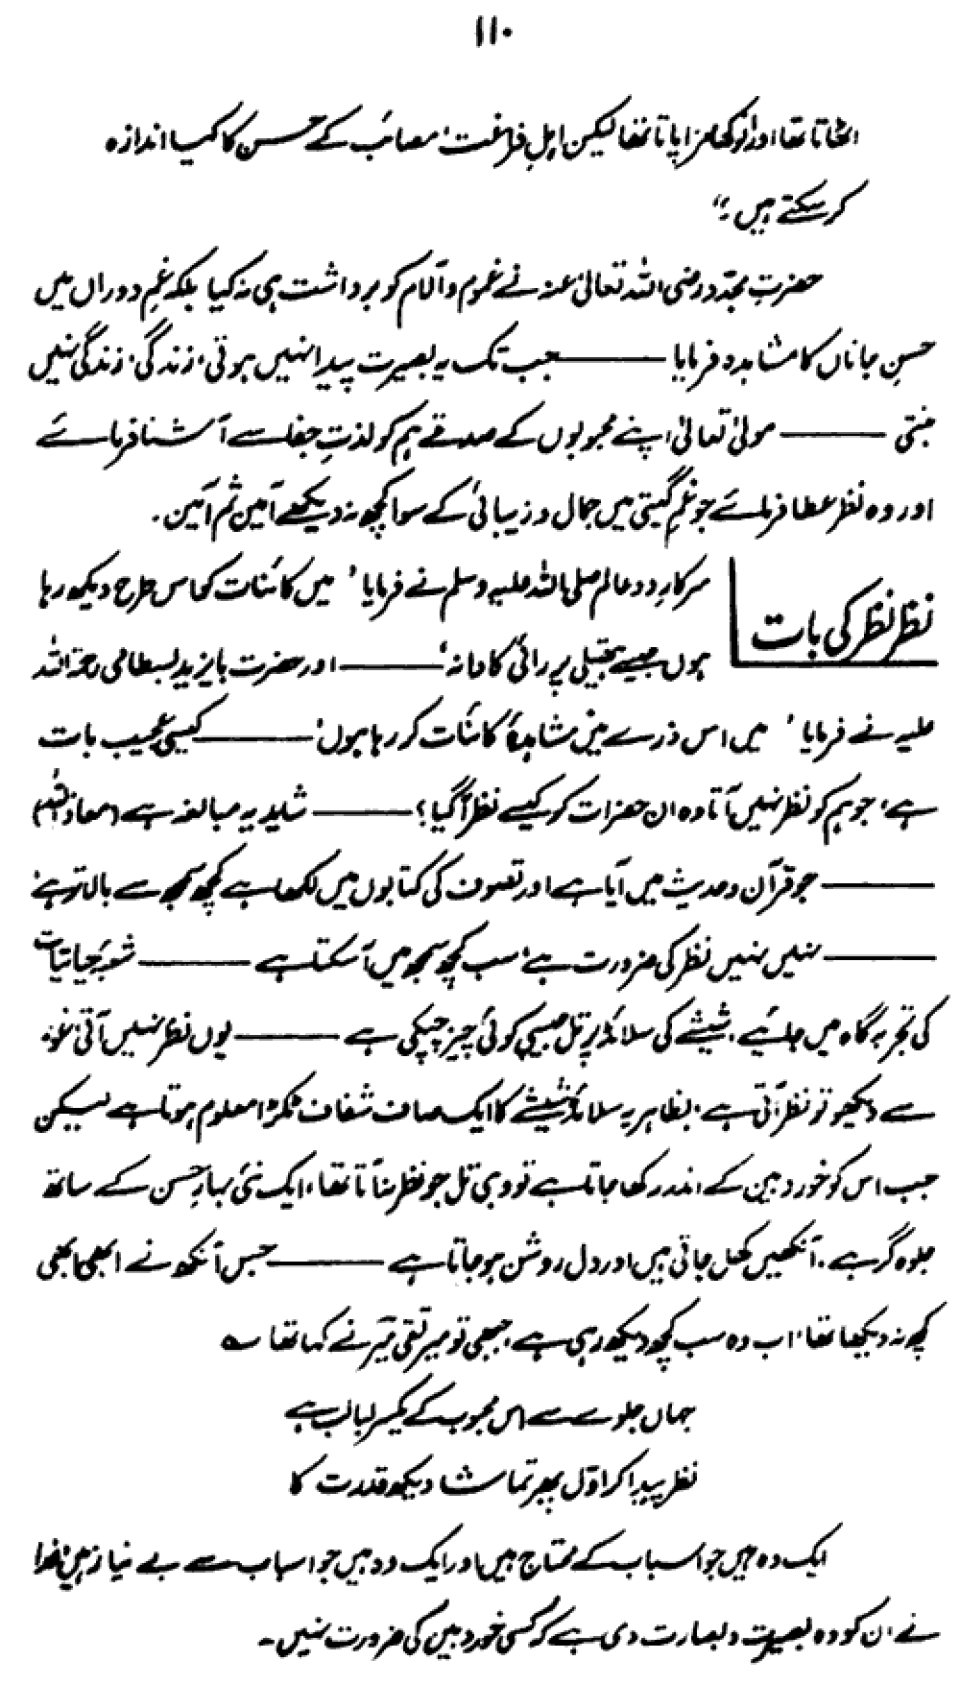 ۱۱۰
اٹھاتا تھا اور انوکھا مزا پاتا تھا لیکن اہلِ فراغت، مصائب کے حسن کا کیا اندازہ
کر سکتے ہیں ؟"
حضرتِ مجدّد رضی اللہ تعالیٰ عنہ نے غموم و آلام کو برداشت ہی نہ کیا بلکہ غمِ دوراں میں
حسنِ جاناں کا مشاہدہ فرمایا ——— جب تک یہ بصیرت پیدا نہیں ہوتی، زندگی، زندگی نہیں
بنتی ——— مولیٰ تعالیٰ اپنے محبوبوں کے صدقے ہم کو لذتِ جفا سے آشنا فرمائے
اور وہ نظر عطا فرمائے جو غمِ گیتی میں جمال و زیبائی کے سوا کچھ نہ دیکھے آمین ثم آمین۔
نظر نظر کی بات
سرکارِ دو عالم صلی اللہ علیہ وسلم نے فرمایا ' میں کائنات کو اس طرح دیکھ رہا
ہوں جیسے ہتھیلی پر رائی کا دانہ' ——— اور حضرت بایزید بسطامی رحمۃ اللہ
علیہ نے فرمایا ' میں اس ذرے میں مشاہدۂ کائنات کر رہا ہوں' ——— کیسی عجیب بات
ہے، جو ہم کو نظر نہیں آتا وہ ان حضرات کو کیسے نظر آگیا؟ ——— شاید یہ مبالغہ ہے (معاذ اللہ)
——— جو قرآن و حدیث میں آیا ہے اور تصوف کی کتابوں میں لکھا ہے کچھ سمجھ سے بالاتر ہے'
——— نہیں نہیں نظر کی ضرورت ہے، سب کچھ سمجھ میں آسکتا ہے ——— شعبۂ حیاتیات
کی تجربہ گاہ میں جائیے، شیشے کی سلائڈ پر تل جیسی کوئی چیز چپکی ہے ——— یوں نظر نہیں آتی، غور
سے دیکھو تو نظر آتی ہے، بظاہر یہ سلائڈ شیشے کا ایک صاف شفاف ٹکڑا معلوم ہوتا ہے لیکن
جب اس کو خوردبین کے اندر رکھا جاتا ہے تو وہی تل جو نظر نہ آتا تھا، ایک نئی بہارِ حسن کے ساتھ
جلوہ گر ہے، آنکھیں کھل جاتی ہیں اور دل روشن ہو جاتا ہے ——— جس آنکھ نے ابھی ابھی
کچھ نہ دیکھا تھا، اب وہ سب کچھ دیکھ رہی ہے، جبھی تو میر تقی میرؔ نے کہا تھا ؎
جہاں جلوے سے اس محبوب کے یکسر لبالب ہے
نظر پیدا کر اوّل پھر تماشا دیکھ قدرت کا
ایک وہ ہیں جو اسباب کے محتاج ہیں اور ایک وہ ہیں جو اسباب سے بے نیاز ہیں، خدا
نے ان کو وہ بصیرت و بصارت دی ہے کہ کسی خوردبین کی ضرورت نہیں۔